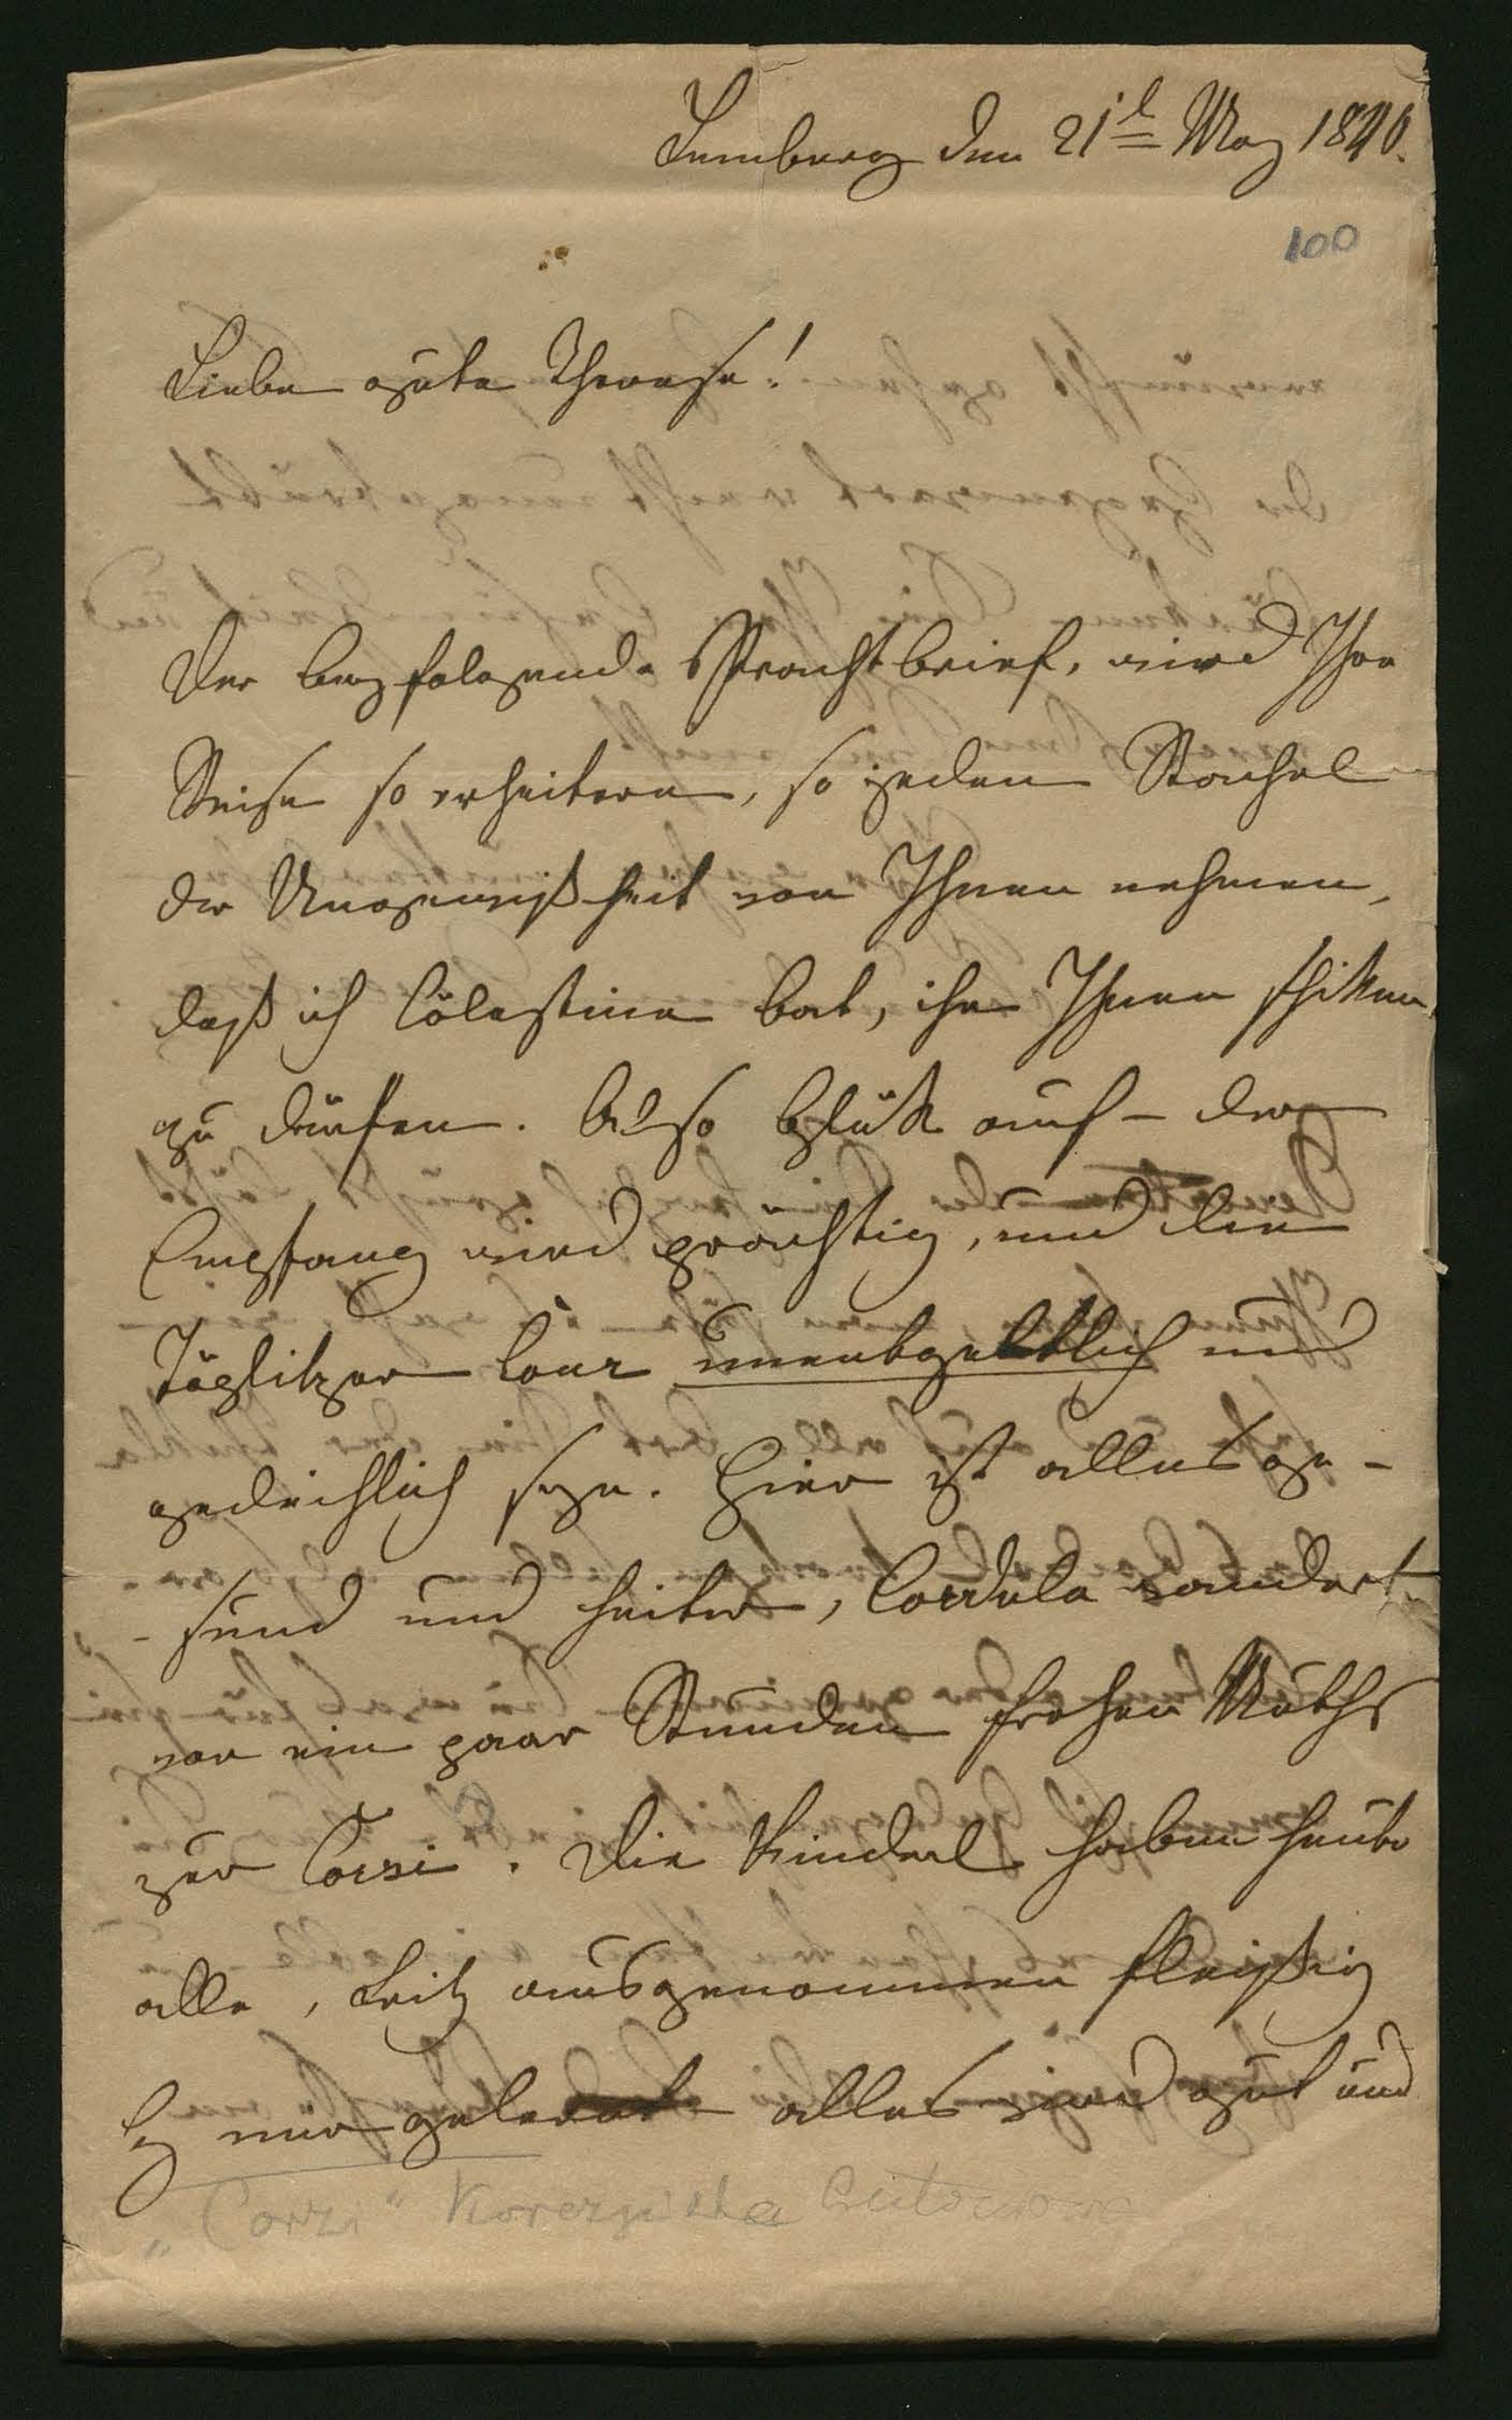 Lemberg den 21t May 1840.
100
Liebe gute Therese!
Der beyfolgende Prachtbrief, wird Ihre
Reise so erheitern, so jeden Stachel
der Ungewißheit von Ihnen nehmen,
daß ich Cölestine bat, ihn Ihnen schiken
zu dürfen. Also Glük auf – der
Empfang wird prächtig, und die
Töplitzer Cour unentgeltlich und
gedeihlich seyn. Hier ist alles ge-
-sund und heiter, Cordula wandert
vor ein paar Stunden frohen Muths
zur Corsi. Die Kinderl haben heute
alle, Leiz ausgenommen fleißig
bey mir gelernt alles wird gut und
"Corzi" Korczyńska